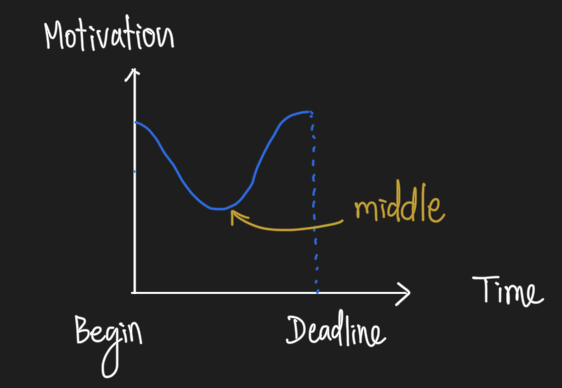 Motivation
middle
Time
Begin
Deadline